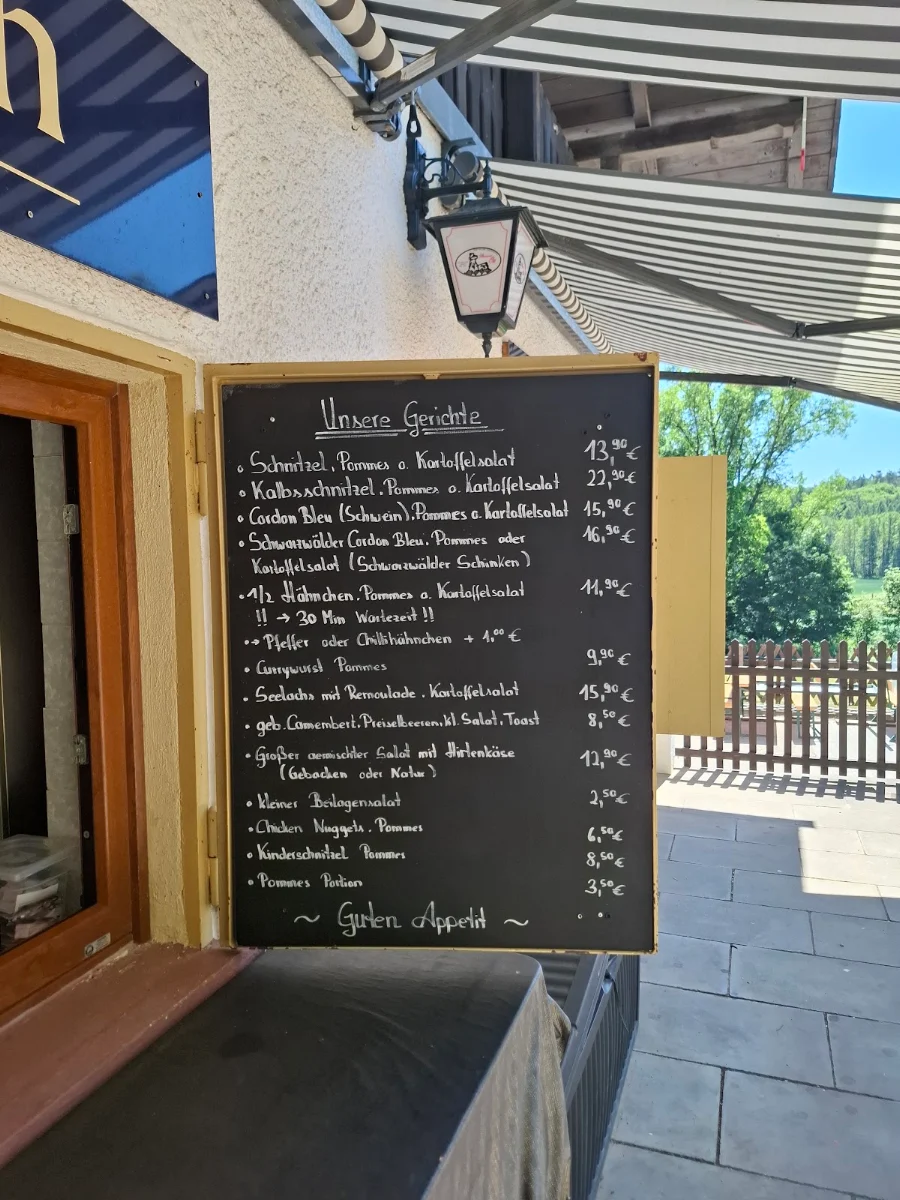 h
Unsere Gerichte
• Schnitzel, Pommes o. Kartoffelsalat 13,90 €
• Kalbsschnitzel, Pommes o. Kartoffelsalat 22,90 €
• Cordon Bleu (Schwein), Pommes o. Kartoffelsalat 15,90 €
• Schwarzwälder Cordon Bleu, Pommes oder 16,90 €
Kartoffelsalat (Schwarzwälder Schinken)
• 1/2 Hähnchen, Pommes o. Kartoffelsalat 11,90 €
!! → 30 Min Wartezeit !!
•→ Pfeffer oder Chillihähnchen + 1,00 €
• Currywurst Pommes 9,90 €
• Seelachs mit Remoulade, Kartoffelsalat 15,90 €
• geb. Camembert, Preiselbeeren, kl. Salat, Toast 8,50 €
• Großer gemischter Salat mit Hirtenkäse 12,90 €
(Gebacken oder Natur)
• kleiner Beilagensalat 2,50 €
• Chicken Nuggets, Pommes 6,50 €
• Kinderschnitzel Pommes 8,50 €
• Pommes Portion 3,50 €
~ Guten Appetit ~